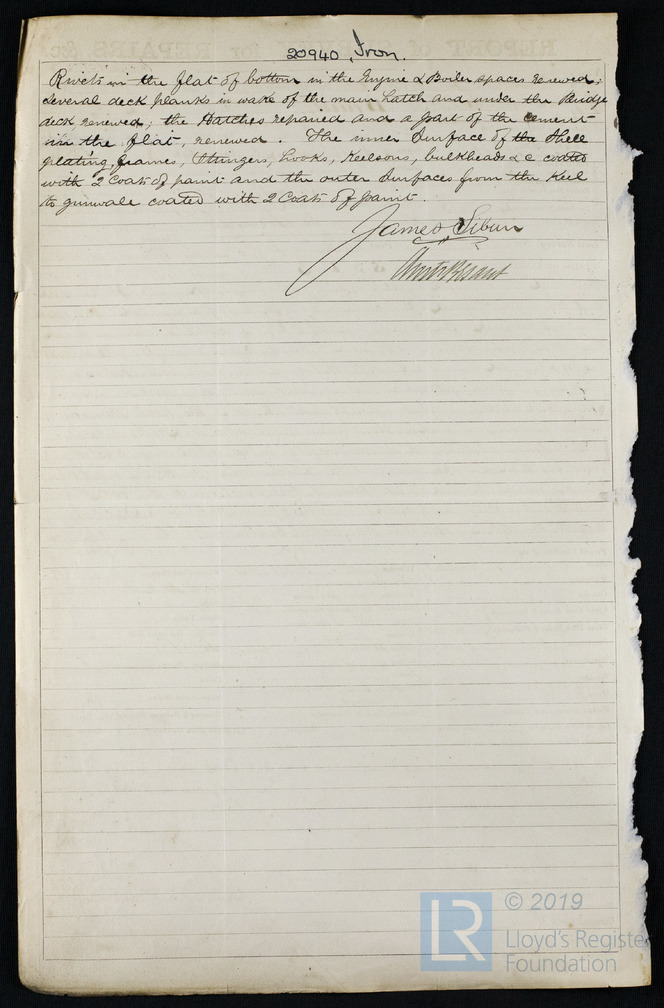 20940, Iron.
Rivets in the flat of bottom in the Engine & Boiler spaces renewed;
several deck planks in wake of the main hatch and under the Bridge
deck, renewed; the Hatches repaired and a part of the cement
in the flat, renewed. The inner Surface of the Shell
plating, frames, Stringers, hooks, Keelsons, bulkheads &c coated
with 2 Coats of paint and the outer Surfaces from the Keel
to gunwale coated with 2 Coats of paint.
James
© 2019
LR
Lloyd's Register
Foundation